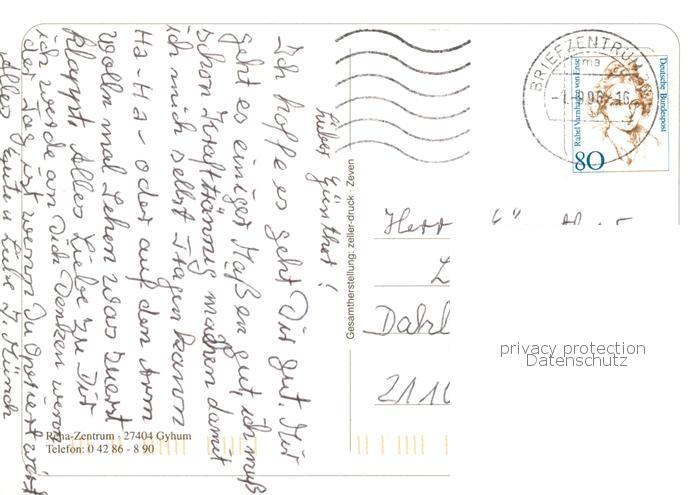 Lieber Günther!
Ich hoffe es geht Dir gut. Mir
geht es einiger Maßen gut, ich muß
schon machen damit
ich mich selbst Tragen kann
Ha-Ha oder auf den Arm
wolln mal sehen was zuerst
klappt. Alles Liebe zu Dir
ich werde an Dich Denken wenn
der Tag ist wenn Du Operiert wirst
Alles Gute u Liebe I. Münch
Reha-Zentrum · 27404 Gyhum
Telefon: 0 42 86 - 8 90
Gesamtherstellung: zeller-druck · Zeven
BRIEFZENTRUM
Deutsche Bundespost
Rahel Varnhagen von Ense
80
Herr
Dahl
privacy protection
Datenschutz